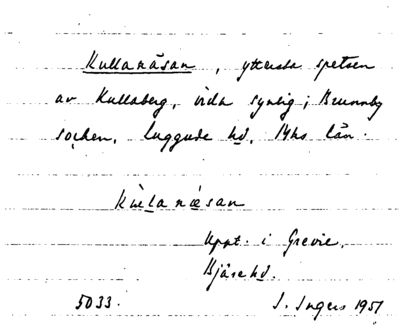 Kullanäsan, yttersta spetsen
av Kullaberg, vida synlig; Brunnby
socken, Luggude hd, Mhs län.
Kùllanæsan
Uppt. i Grevie,
Bjäre hd.
5033. I. Ingers 1951